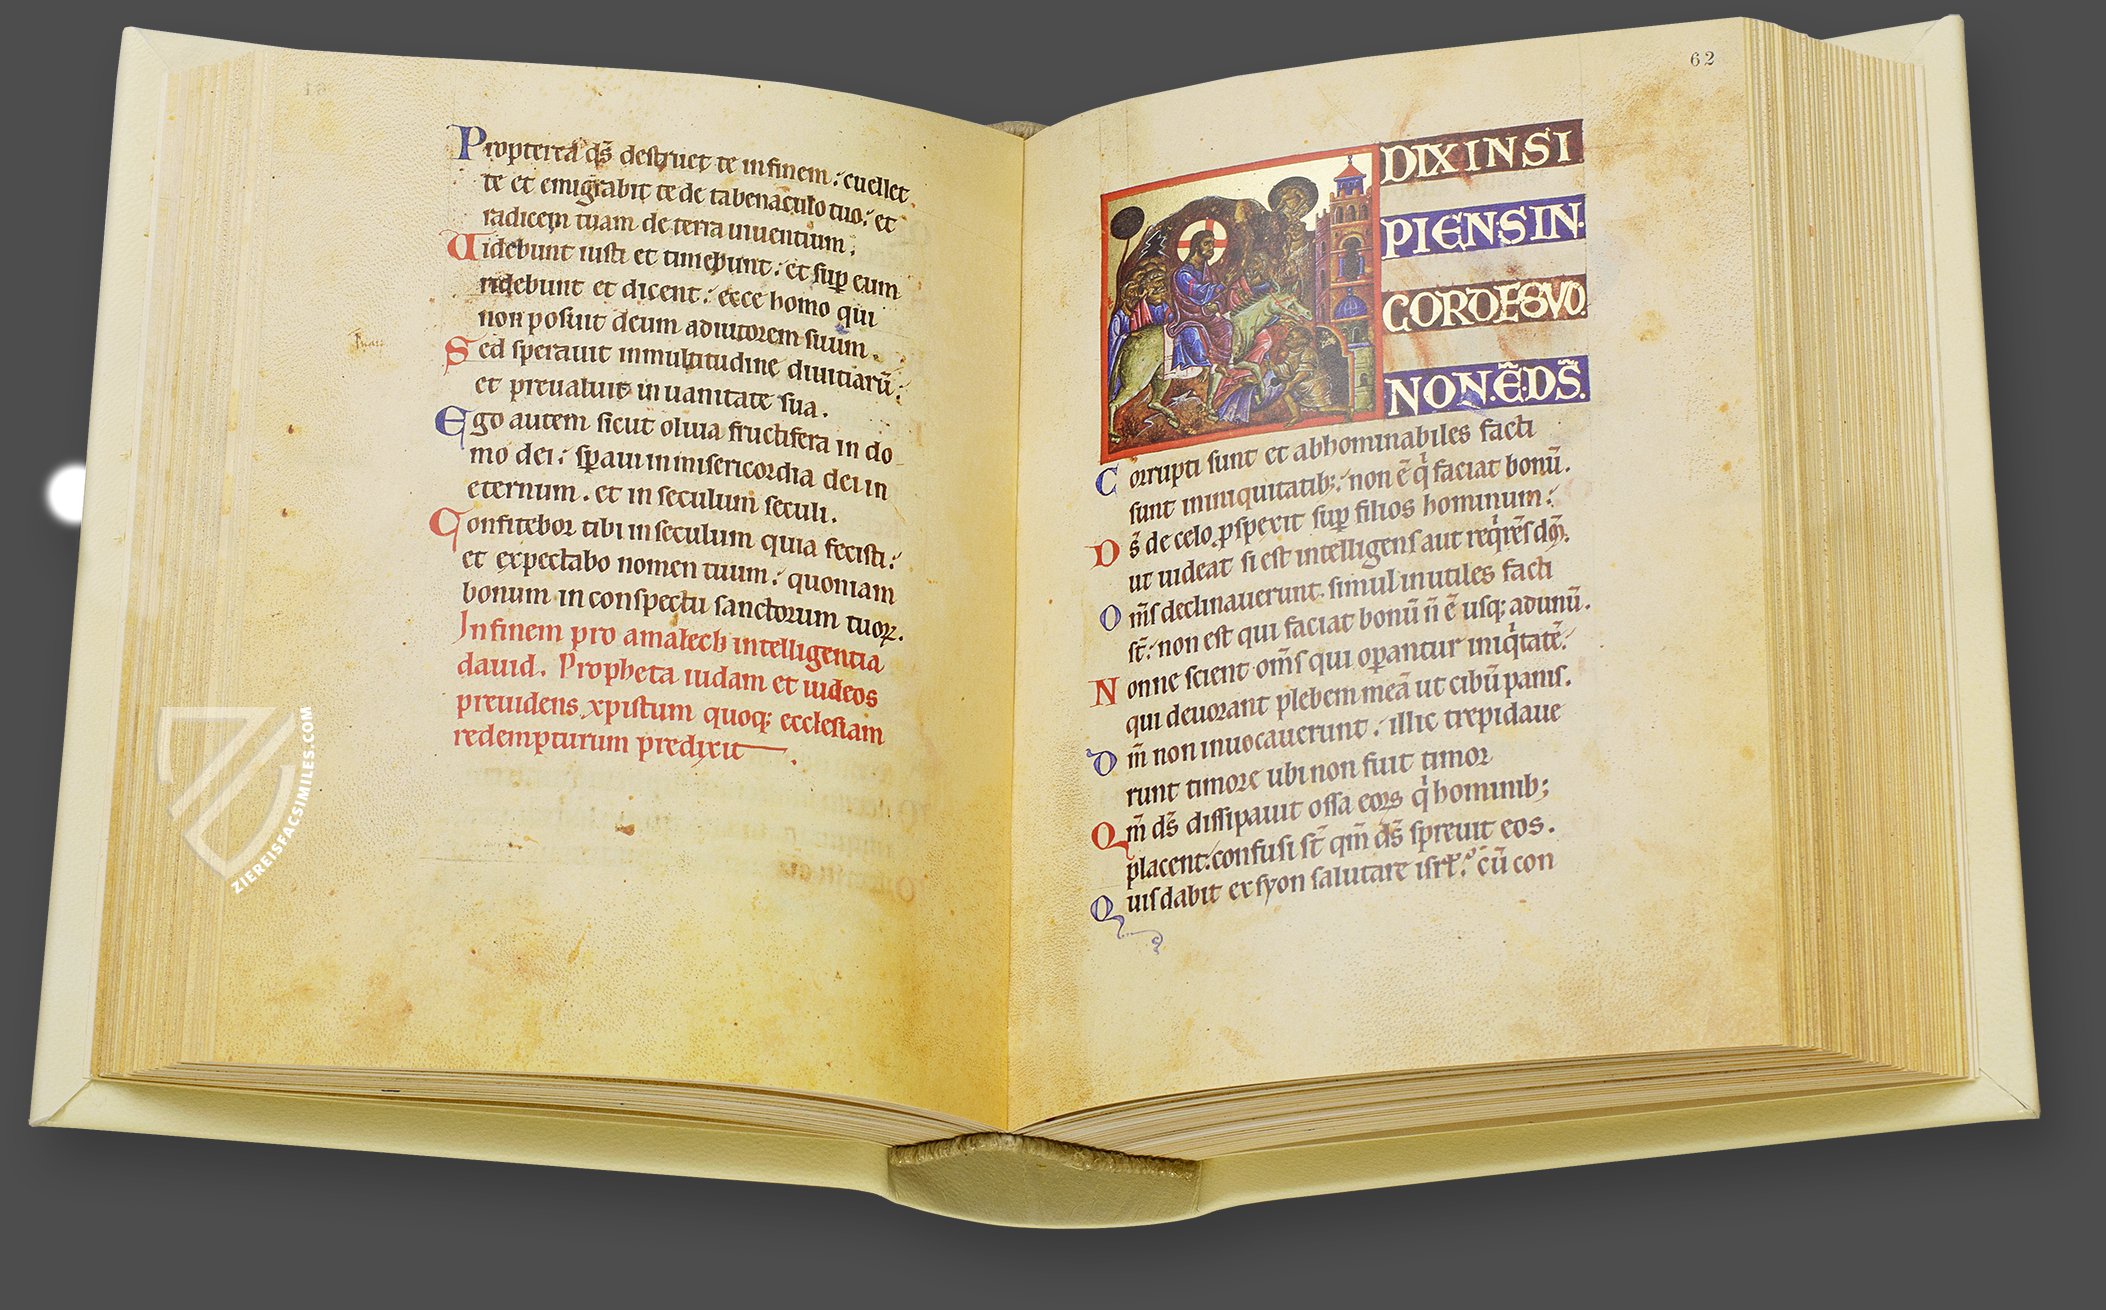 61
Propterea ds̄ destruet te in finem : euellet
te et emigrabit te de tabernaculo tuo : et
radicem tuam de terra uiuentium :
Uidebunt iusti et timebunt : et sup eum
ridebunt et dicent : ecce homo qui
non posuit deum adiutorem suum .
Sed sperauit in multitudine diuitiarū :
et preualuit in uanitate sua .
Ego autem sicut oliua fructifera in do
mo dei : spaui in misericordia dei in
eternum . et in seculum seculi .
Confitebor tibi in seculum quia fecisti :
et expectabo nomen tuum : quoniam
bonum in conspectu sanctorum tuoꝝ .
In finem pro amalech intelligentia
dauid . Propheta iudam et iudeos
preuidens xpistum quoq; ecclesiam
redempturum predixit .
ZIEREISFACSIMILES.COM
62
DIXIN SI
PIENS IN .
CORDE SVO .
NON . Ē . D̄S̄ .
Corrupti sunt et abhominabiles facti
sunt in iniquitatib; : non ē q̇ faciat bonū .
Ds̄ de celo pspexit sup filios hominum :
ut uideat si est intelligens aut
Om̄s declinauerunt . simul inutiles facti
st̄ : non est qui faciat bonū n̄ ē usq; ad unū .
Nonne scient om̄s qui opantur iniq̇tatē :
qui deuorant plebem meā ut cibū panis .
Dm̄ non inuocauerunt : illic trepidaue
runt timore ubi non fuit timor
Qm̄ ds̄ dissipauit ossa eoꝝ q̇ hominib;
placent : confusi st̄ qm̄ ds̄ spreuit eos .
Quis dabit ex syon salutare isrl̄ : cū con